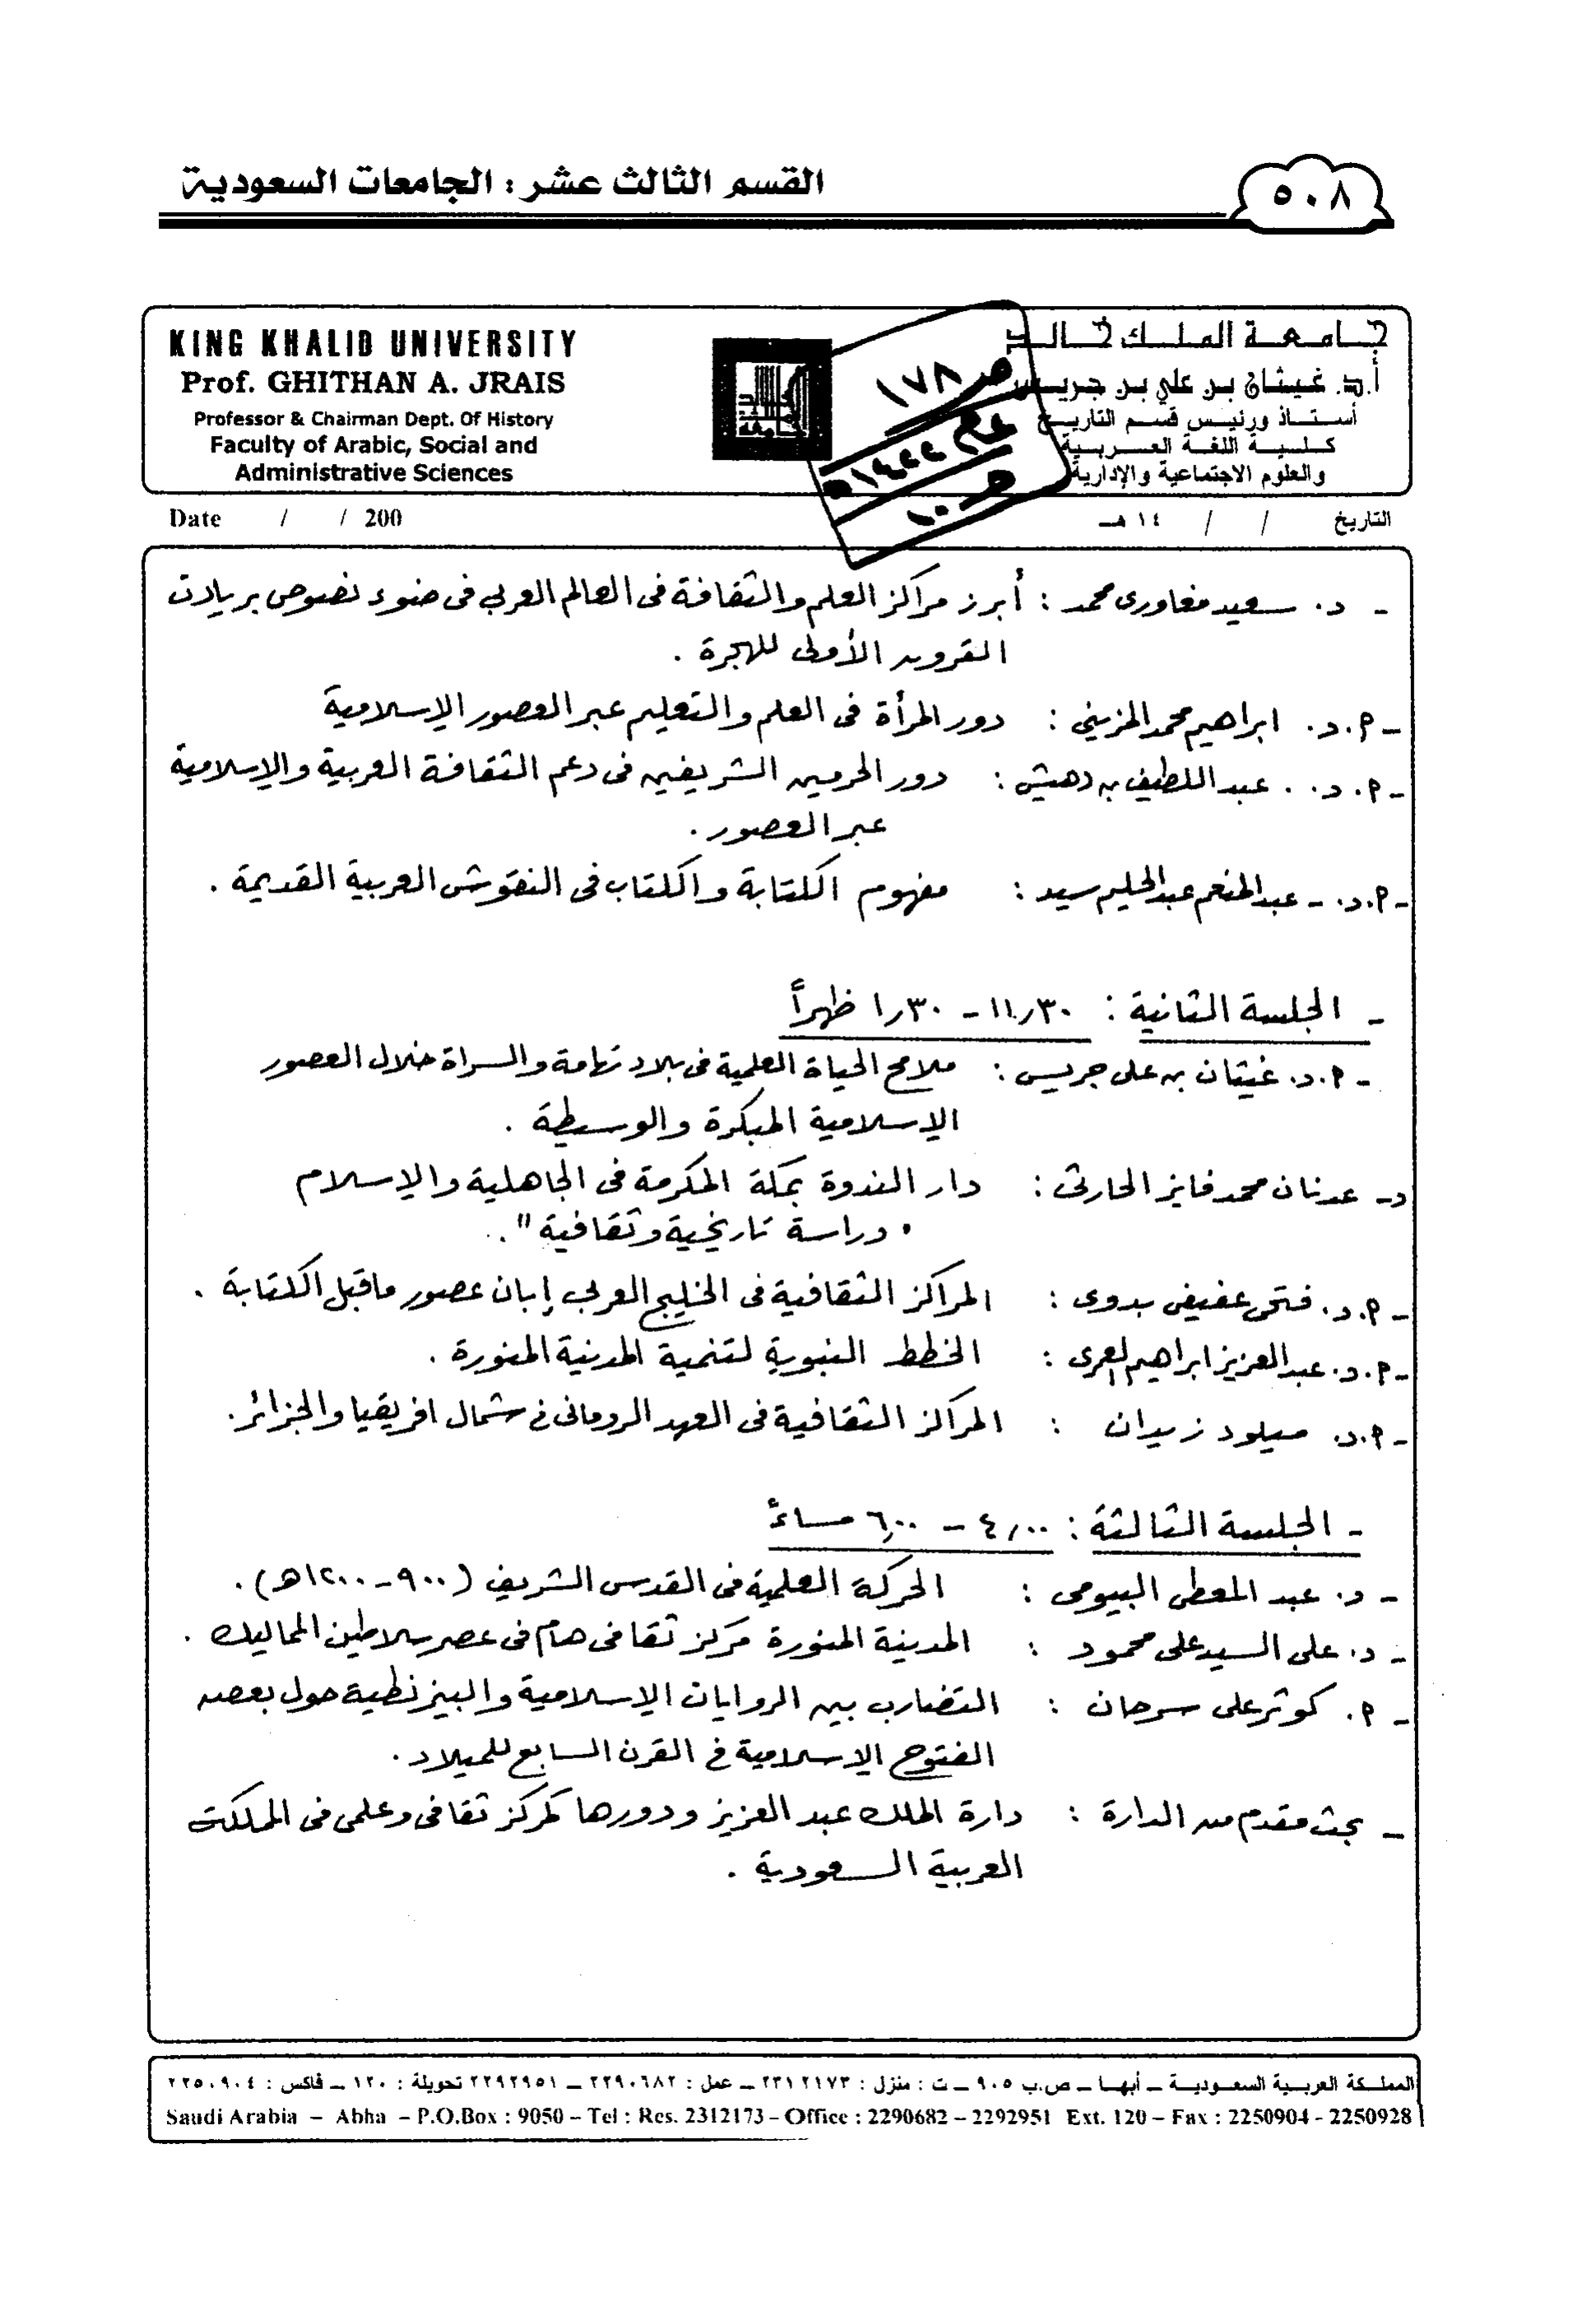 ٥٠٨
القسم الثالث عشر : الجامعات السعودية
KING KHALID UNIVERSITY
Prof. GHITHAN A. JRAIS
Professor & Chairman Dept. Of History
Faculty of Arabic, Social and
Administrative Sciences
جامعة الملك خالد
أ.د. غيثان بن علي بن جريس
أستاذ ورئيس قسم التاريخ
كلية اللغة العربية
والعلوم الاجتماعية والإدارية
ص ١٧٨
عام ١٤٢٢ هـ
ص ١٠
Date / / 200
التاريخ / / ١٤ هـ
- د. سعيد مغاوري محمد : أبرز مراكز العلم والثقافة في العالم العربي في ضوء نصوص برديات
القرون الأولى للهجرة .
- أ.د. ابراهيم محمد المزيني : دور المرأة في العلم والتعليم عبر العصور الإسلامية
- أ.د. . عبد اللطيف بن دهيش : دور الحرمين الشريفين في دعم الثقافة العربية والإسلامية
عبر العصور .
- أ.د. - عبد المنعم عبد الحليم سيد : مفهوم الكتابة والكتاب في النقوش العربية القديمة .
- الجلسة الثانية : ١١,٣٠ - ١,٣٠ ظهراً
- أ.د. غيثان بن علي جريس : ملامح الحياة العلمية في بلاد تهامة والسراة خلال العصور
الإسلامية المبكرة والوسيطة .
د- عدنان محمد فايز الحارثي : دار الندوة بمكة المكرمة في الجاهلية والإسلام
" دراسة تاريخية وثقافية " .
- أ.د. فتحي عفيفي بدوي : المراكز الثقافية في الخليج العربي إبان عصور ما قبل الكتابة .
- أ.د. عبد العزيز ابراهيم العمري : الخطط النبوية لتنمية المدينة المنورة .
- أ.د. ميلود زيدان : المراكز الثقافية في العهد الروماني في شمال افريقيا والجزائر .
- الجلسة الثالثة : ٤,٠٠ - ٦,٠٠ مساءً
- د. عبد المعطي البيومي : الحركة العلمية في القدس الشريف ( ٩٠٠ - ١٢٠٠هـ ) .
- د. علي السيد علي محمود : المدينة المنورة مركز ثقافي هام في عصر سلاطين المماليك .
- أ. كوثر علي سرحان : التضارب بين الروايات الإسلامية والبيزنطية حول بعض
الفتوح الإسلامية في القرن السابع للميلاد .
- بحث مقدم من الدارة : دارة الملك عبد العزيز ودورها كمركز ثقافي وعلمي في المملكة
العربية السعودية .
المملكة العربية السعودية – أبها – ص.ب ٩٠٥ – ت : منزل : ٢٣١٢١٧٣ – عمل : ٢٢٩٠٦٨٢ – ٢٢٩٢٩٥١ تحويلة : ١٢٠ – فاكس : ٢٢٥٠٩٠٤
Saudi Arabia – Abha – P.O.Box : 9050 – Tel : Res. 2312173 – Office : 2290682 – 2292951 Ext. 120 – Fax : 2250904 - 2250928